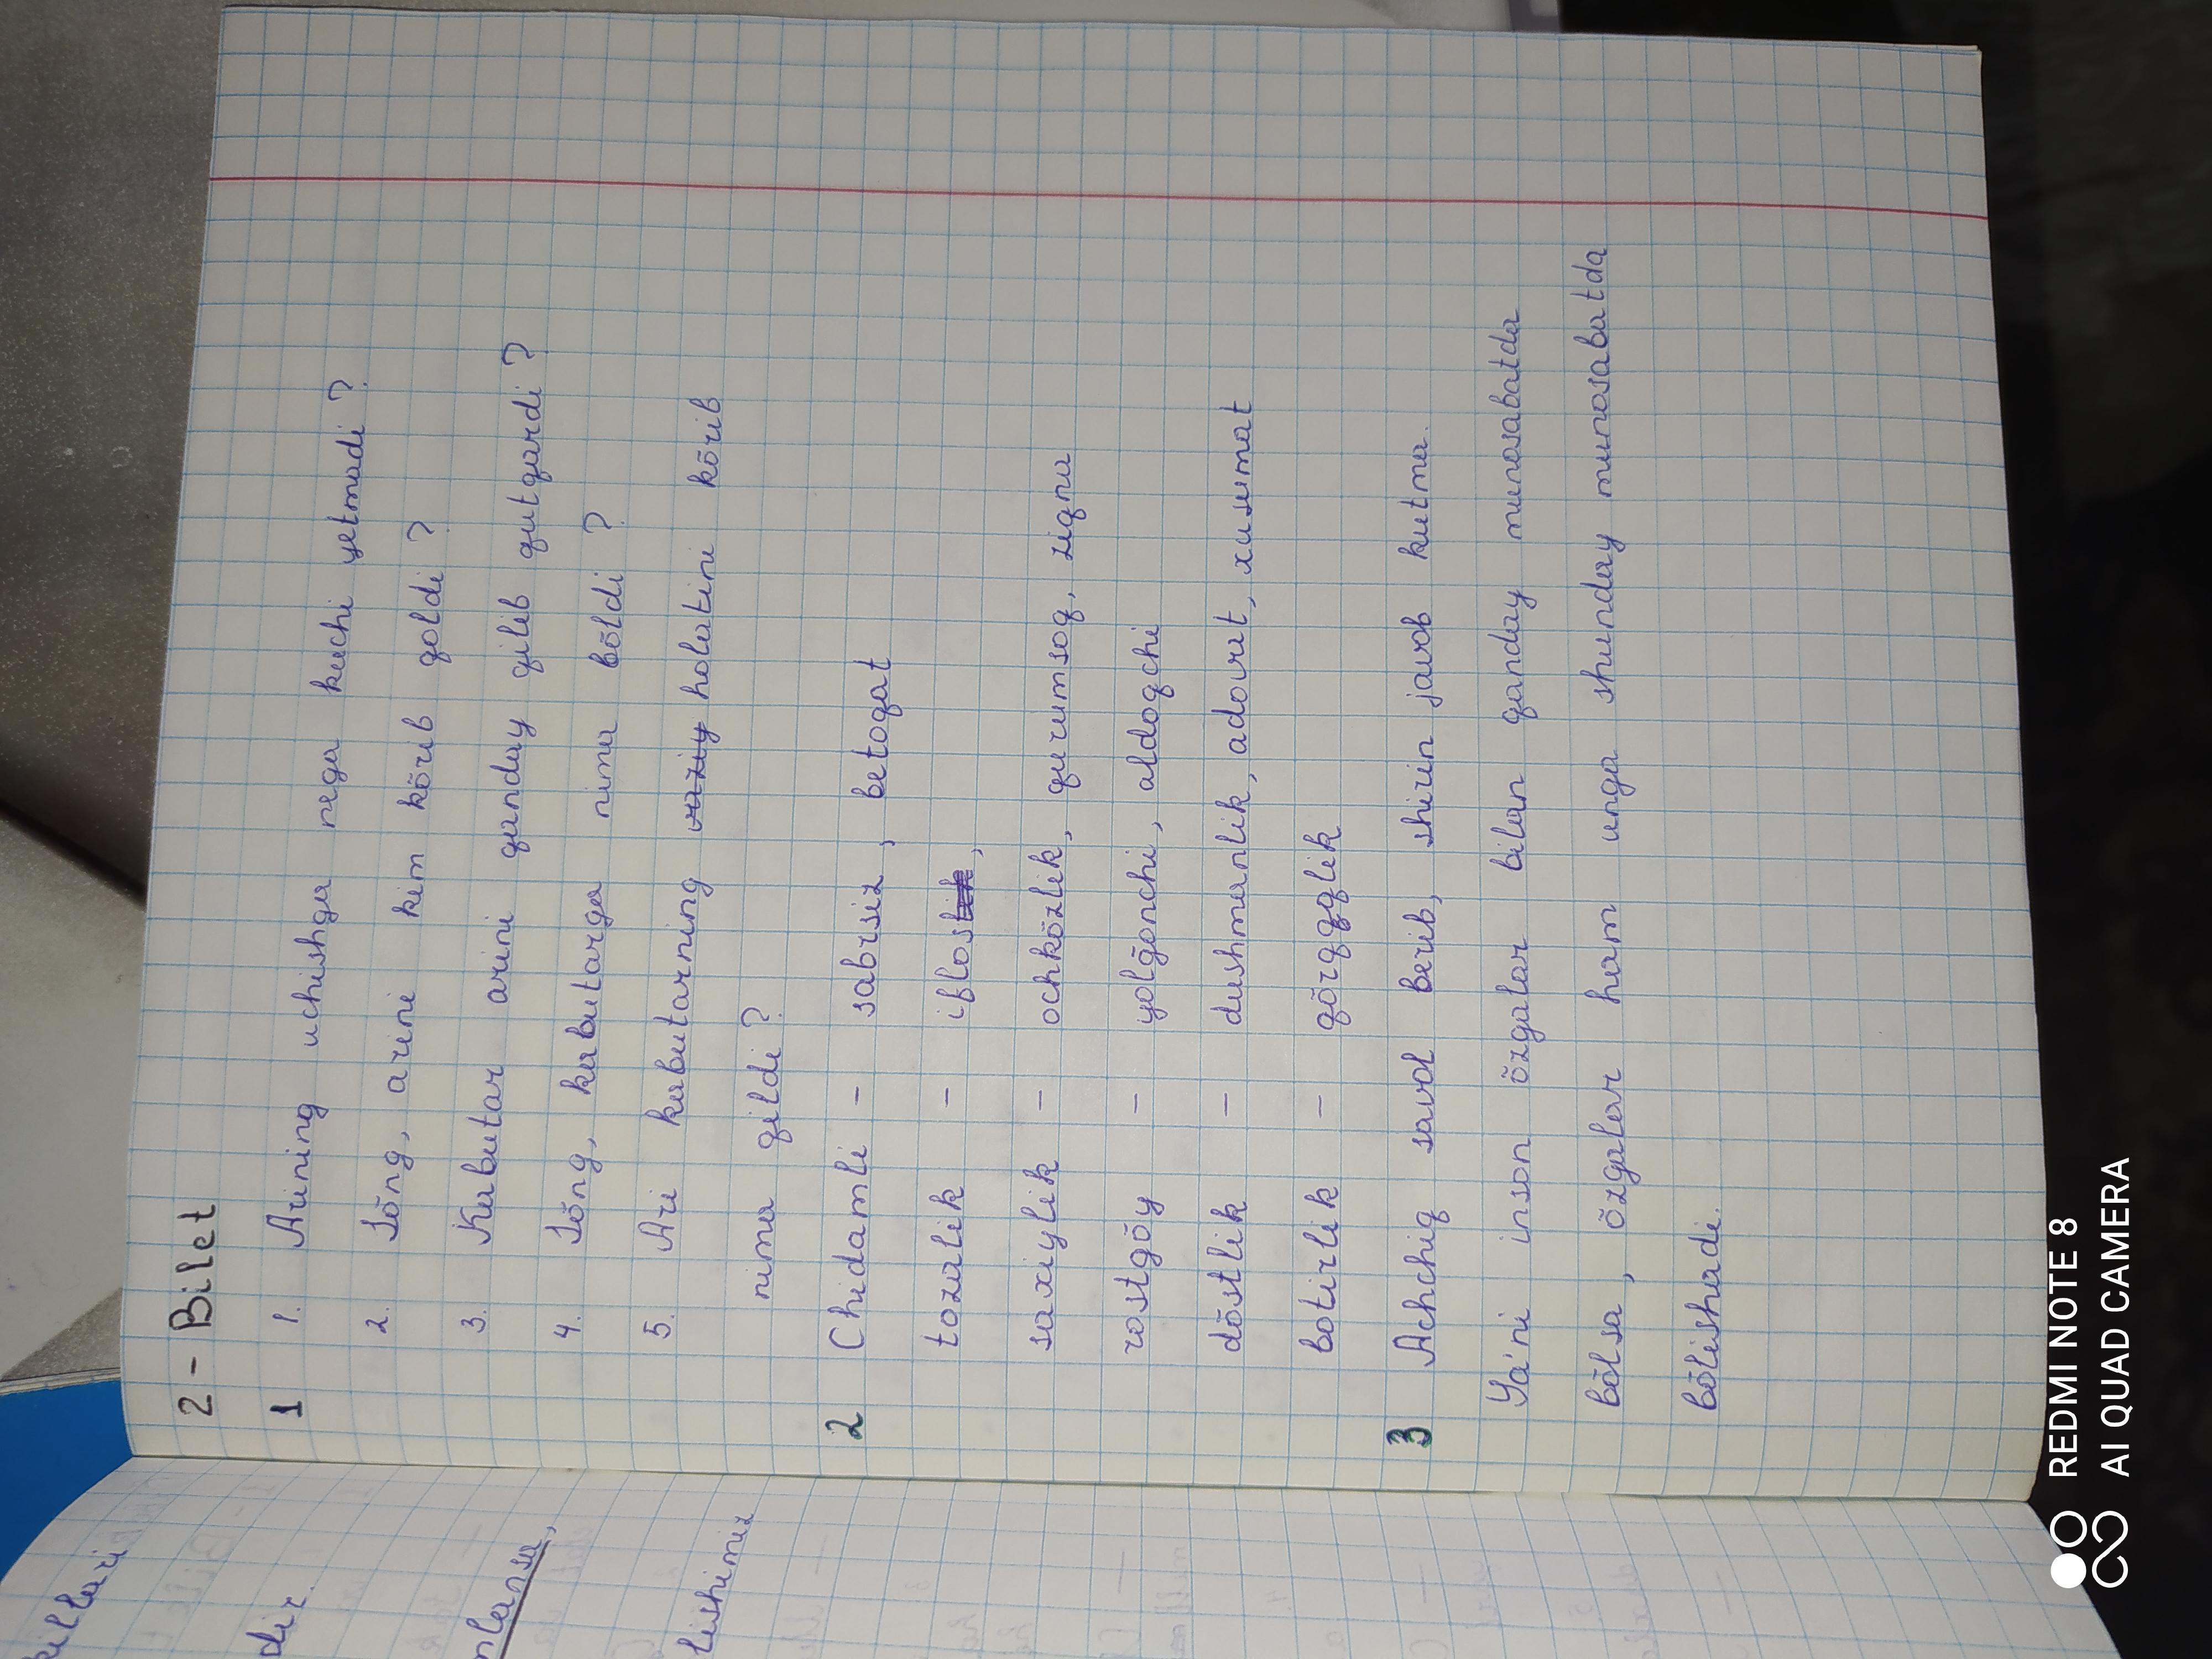 2 - Bilet
1 1. Arining uchishga nega kuchi yetmadi ?
2. Sõng, arini kim kõrib qoldi ?
3. Kabutar arini qanday qilib qutqardi ?
4. Sõng, kabutarga nima bõldi ?
5. Ari kabutarning vaziy holatini kõrib
nima qildi ?
2 Chidamli – sabrsiz, betoqat
tozalik – iflos,
saxiylik – ochkõzlik, qurumsoq, ziqna
rostgõy – yolg̃onchi, aldoqchi
dõstlik – dushmanlik, adovat, xusumat
botirlik – qõrqqlik
3 Achchiq savol berib, shirin javob kutma.
Ya'ni inson õzgalar bilan qanday munosabatda
bõlsa, õzgalar ham unga shunday munosabatda
bõlishadi.
killari
dir.
nlansa,
lishimiz
REDMI NOTE 8
AI QUAD CAMERA